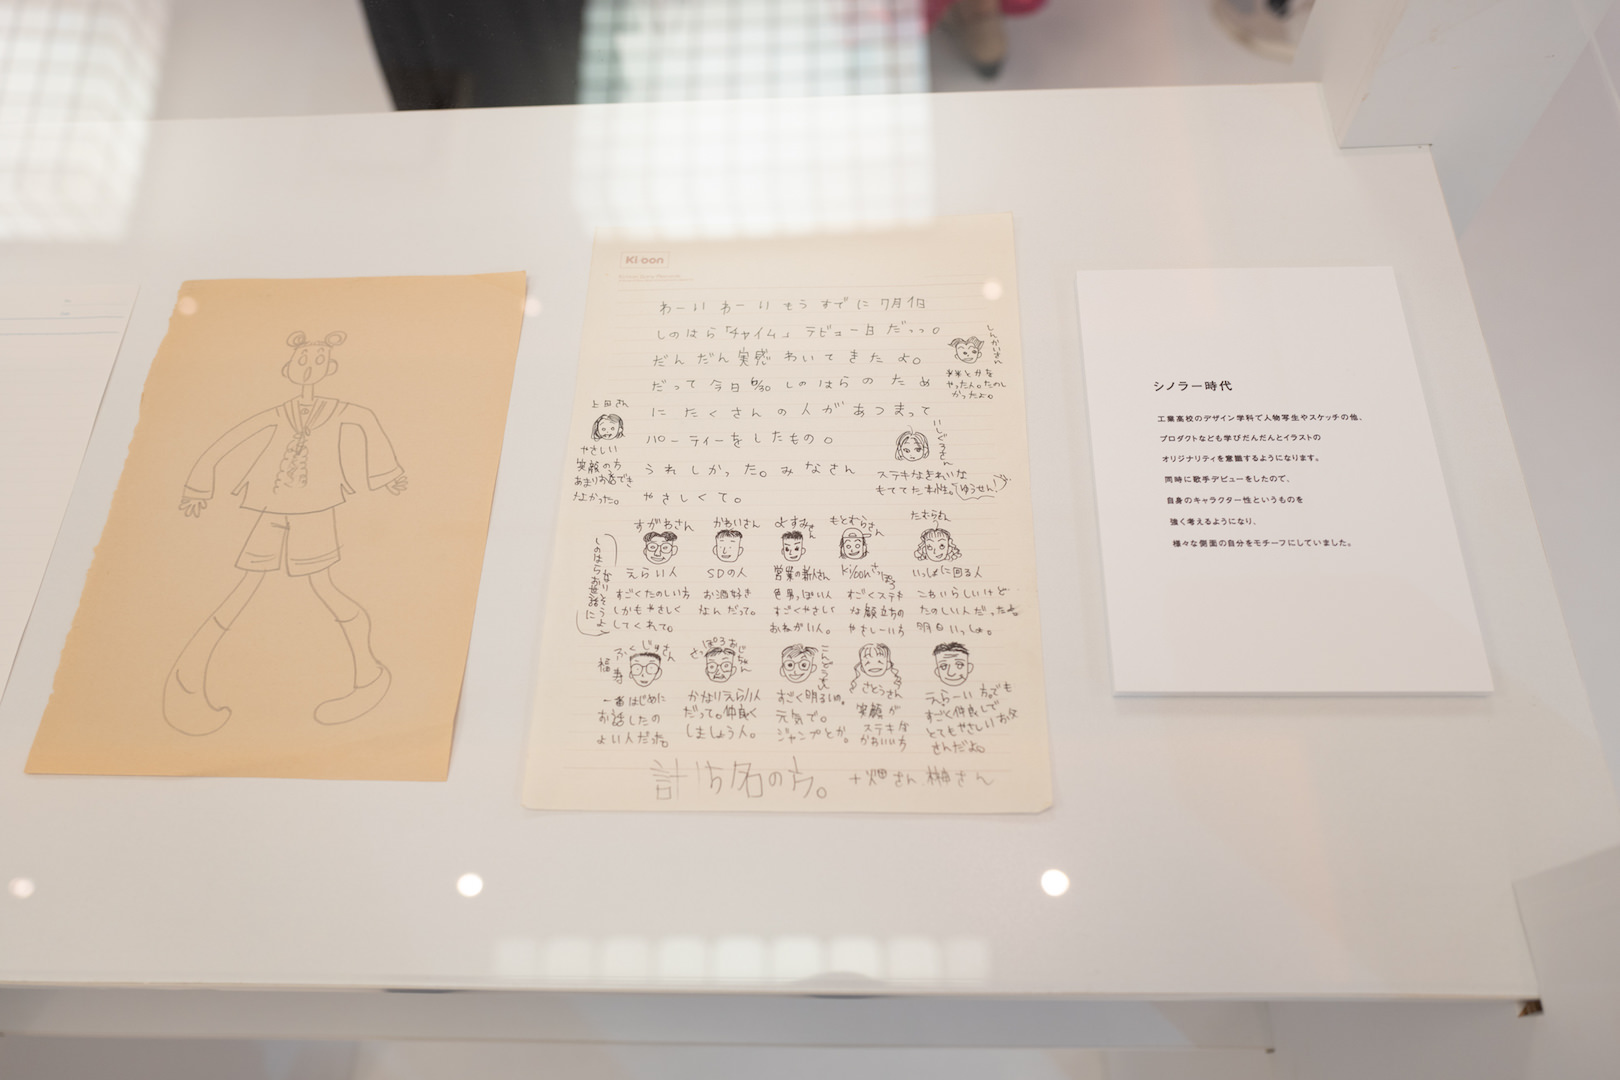 Ki oon
わーい わーい もうすぐに 7月1日
しのはら「チャイム」デビュー日だっっ。
だんだん実感わいてきたよ。
だって今日6/30 しのはらのため
にたくさんの人があつまって
パーティーをしたもの。
うれしかった。みなさん
やさしくて。
しんかいさん
やったん。たのし
かったよ。
上田さん
やさしい
笑顔の方
あまりお話でき
なかった。
いしぐろさん
ステキなきれいな
すがわさん
えらい人
すごくたのしい方
しかもやさしく
してくれて。
かわいさん
SDの人
お酒好き
なんだって。
営業の新人さん
色男っぽい人
すごくやさしく
おねがい人。
もとむらさん
Ki/oonさっぽろ
すごくステキ
な顔立ちの
やさしーい方
たむらさん
いっしょに回る人
こわいらしいけど
たのしい人だった
明日いっしょ。
ふくじゅさん
福寿
一番はじめに
お話したの
よい人だった。
さっぽろおじちゃん
かなりえらい人
だって。仲良く
しましょう人。
すごく明るいの。
元気で。
ジャンプとか。
さとうさん
笑顔が
ステキな
かわいい方
えらーい方。でも
すごく仲良しで
とてもやさしいお父
さんだよ。
計15名の方。
+畑さん 榊さん
シノラー時代
工業高校のデザイン学科で人物写生やスケッチの他、
プロダクトなども学びだんだんとイラストの
オリジナリティを意識するようになります。
同時に歌手デビューをしたので、
自身のキャラクター性というものを
強く考えるようになり、
様々な側面の自分をモチーフにしていました。